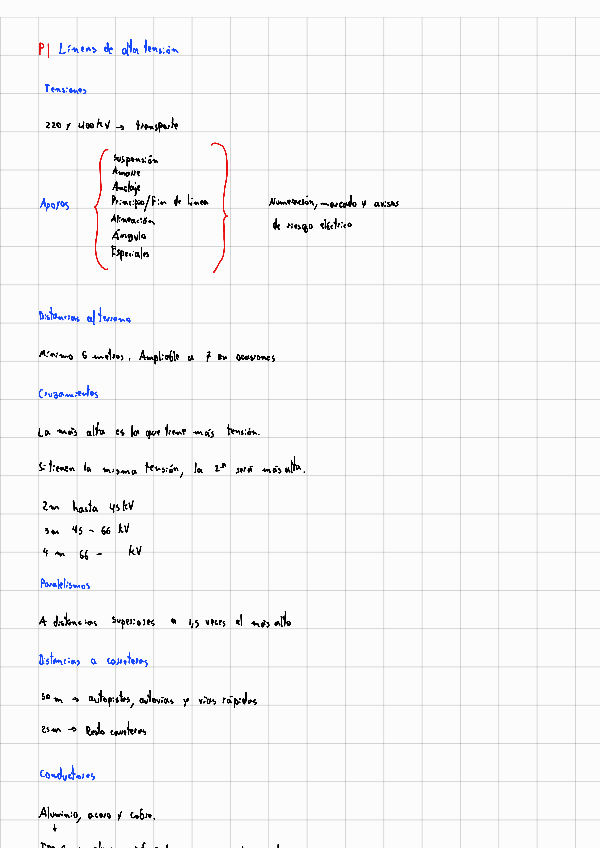 P1 Líneas de alta tensión
Tensiones
220 y 400 kV → transporte
Apoyos
Suspensión
Amarre
Anclaje
Principio/Fin de línea
Alineación
Ángulo
Especiales
Numeración, marcado y avisos
de riesgo eléctrico
Distancias al terreno
Mínimo 6 metros. Ampliable a 7 en ocasiones
Cruzamientos
La más alta es la que tiene más tensión.
Si tienen la misma tensión, la 2ª será más alta.
2m hasta 45 kV
3m 45 - 66 kV
4 m 66 - kV
Paralelismos
A distancias superiores a 1,5 veces el más alto
Distancias a carreteras
50 m → autopistas, autovías y vías rápidas
25m → Resto carreteras
Conductores
Aluminio, acero y cobre.
↓